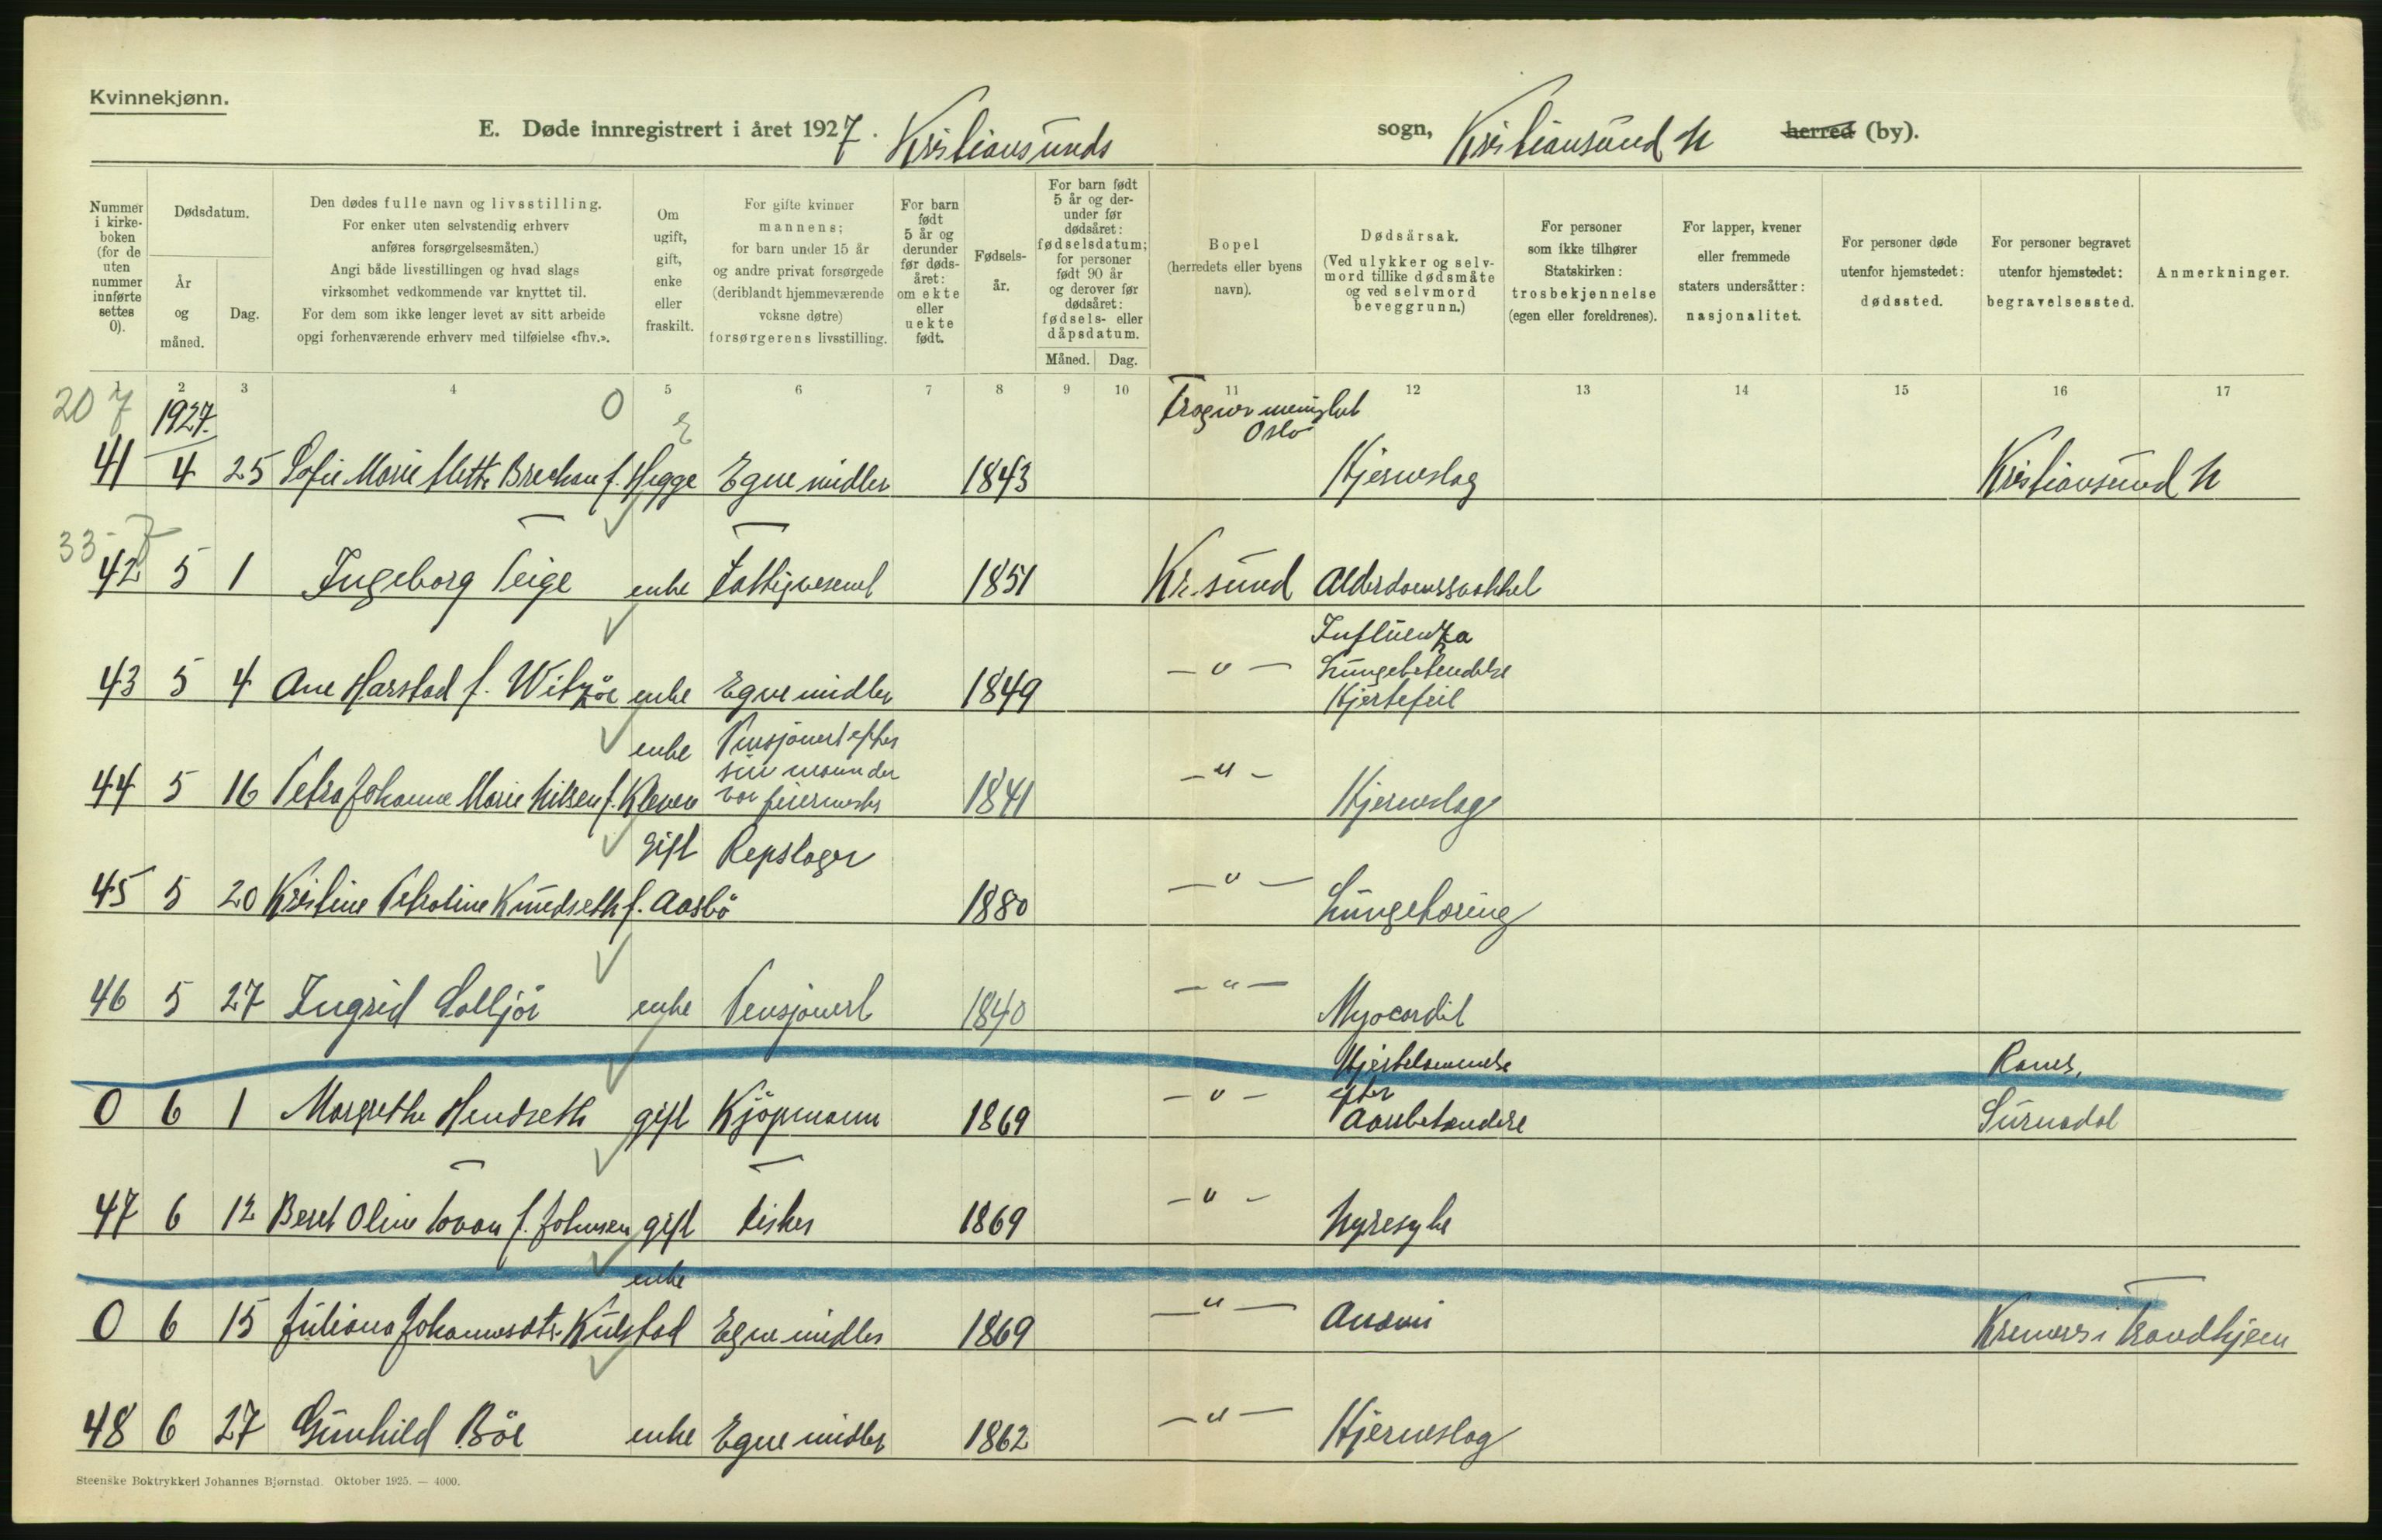 Kvinnekjønn.
E. Døde innregistrert i året 1927. Kristiansunds sogn, Kristiansund N herred (by).
Nummer i kirkeboken (for de uten nummer innførte settes 0).
Dødsdatum.
År og måned.
Dag.
Den dødes fulle navn og livsstilling.
For enker uten selvstendig erhverv
anføres forsørgelsesmåten.)
Angi både livsstillingen og hvad slags
virksomhet vedkommende var knyttet til.
For dem som ikke lenger levet av sitt arbeide
opgi forhenværende erhverv med tilføielse «fhv.».
Om ugift, gift, enke eller fraskilt.
For gifte kvinner
mannens;
for barn under 15 år
og andre privat forsørgede
(deriblandt hjemmeværende
voksne døtre)
forsørgerens livsstilling.
For barn født 5 år og derunder før dødsåret: om ekte eller uekte født.
Fødselsår.
For barn født 5 år og derunder før dødsåret: fødselsdatum; for personer født 90 år og derover før dødsåret: fødsels- eller dåpsdatum.
Måned. Dag.
Bopel
(herredets eller byens
navn).
Dødsårsak.
(Ved ulykker og selvmord tillike dødsmåte og ved selvmord beveggrunn.)
For personer
som ikke tilhører
Statskirken:
trosbekjennelse
(egen eller foreldrenes).
For lapper, kvener
eller fremmede
staters undersåtter:
nasjonalitet.
For personer døde
utenfor hjemstedet:
dødssted.
For personer begravet
utenfor hjemstedet:
begravelsessted.
Anmerkninger.
1 2 3 4 5 6 7 8 9 10 11 12 13 14 15 16 17
20 7 1927. 0 E Frogner menighet
Oslo
41 4 25 Sofie Marie Mette f. Hegge Egne midler 1843 Hjerneslag Kristiansund N
33-7
42 5 1 Ingeborg Teige enke Fattigvesenet 1851 Kr.sund Alderdomssvakkel
Influenza
43 5 4 Ane Harstad f. Witzöe enke Egne midler 1849 -"- Lungebetendelse
Hjertefeil
enke Pensjonert efter
sin mann der
44 5 16 Petra Johanne Marie Nilsen f. Kleven var feiermester 1841 -"- Hjerneslag
gift Repslager
45 5 20 Kristine Petroline Knudseth f. Aasbö 1880 -"- Lungetæring
46 5 27 Ingrid Solljör enke Pensjonert 1840 -"- Myocardit
Hjertelammelse Ranes,
efter
0 6 1 Margrethe Hendseth gift Kjöpmann 1869 -"- Aarebetendelse Surnadal
47 6 12 Beret Oline f. Johnsen gift Fisker 1869 -"- Nyresyke
enke
0 6 15 Juliana Johannesdtr. Kulstad Egne midler 1869 -"- Anæmi Kremeres i Trondhjem
48 6 27 Gunhild Böe enke Egne midler 1862 -"- Hjerneslag
Steenske Boktrykkeri Johannes Bjørnstad. Oktober 1925. — 4000.